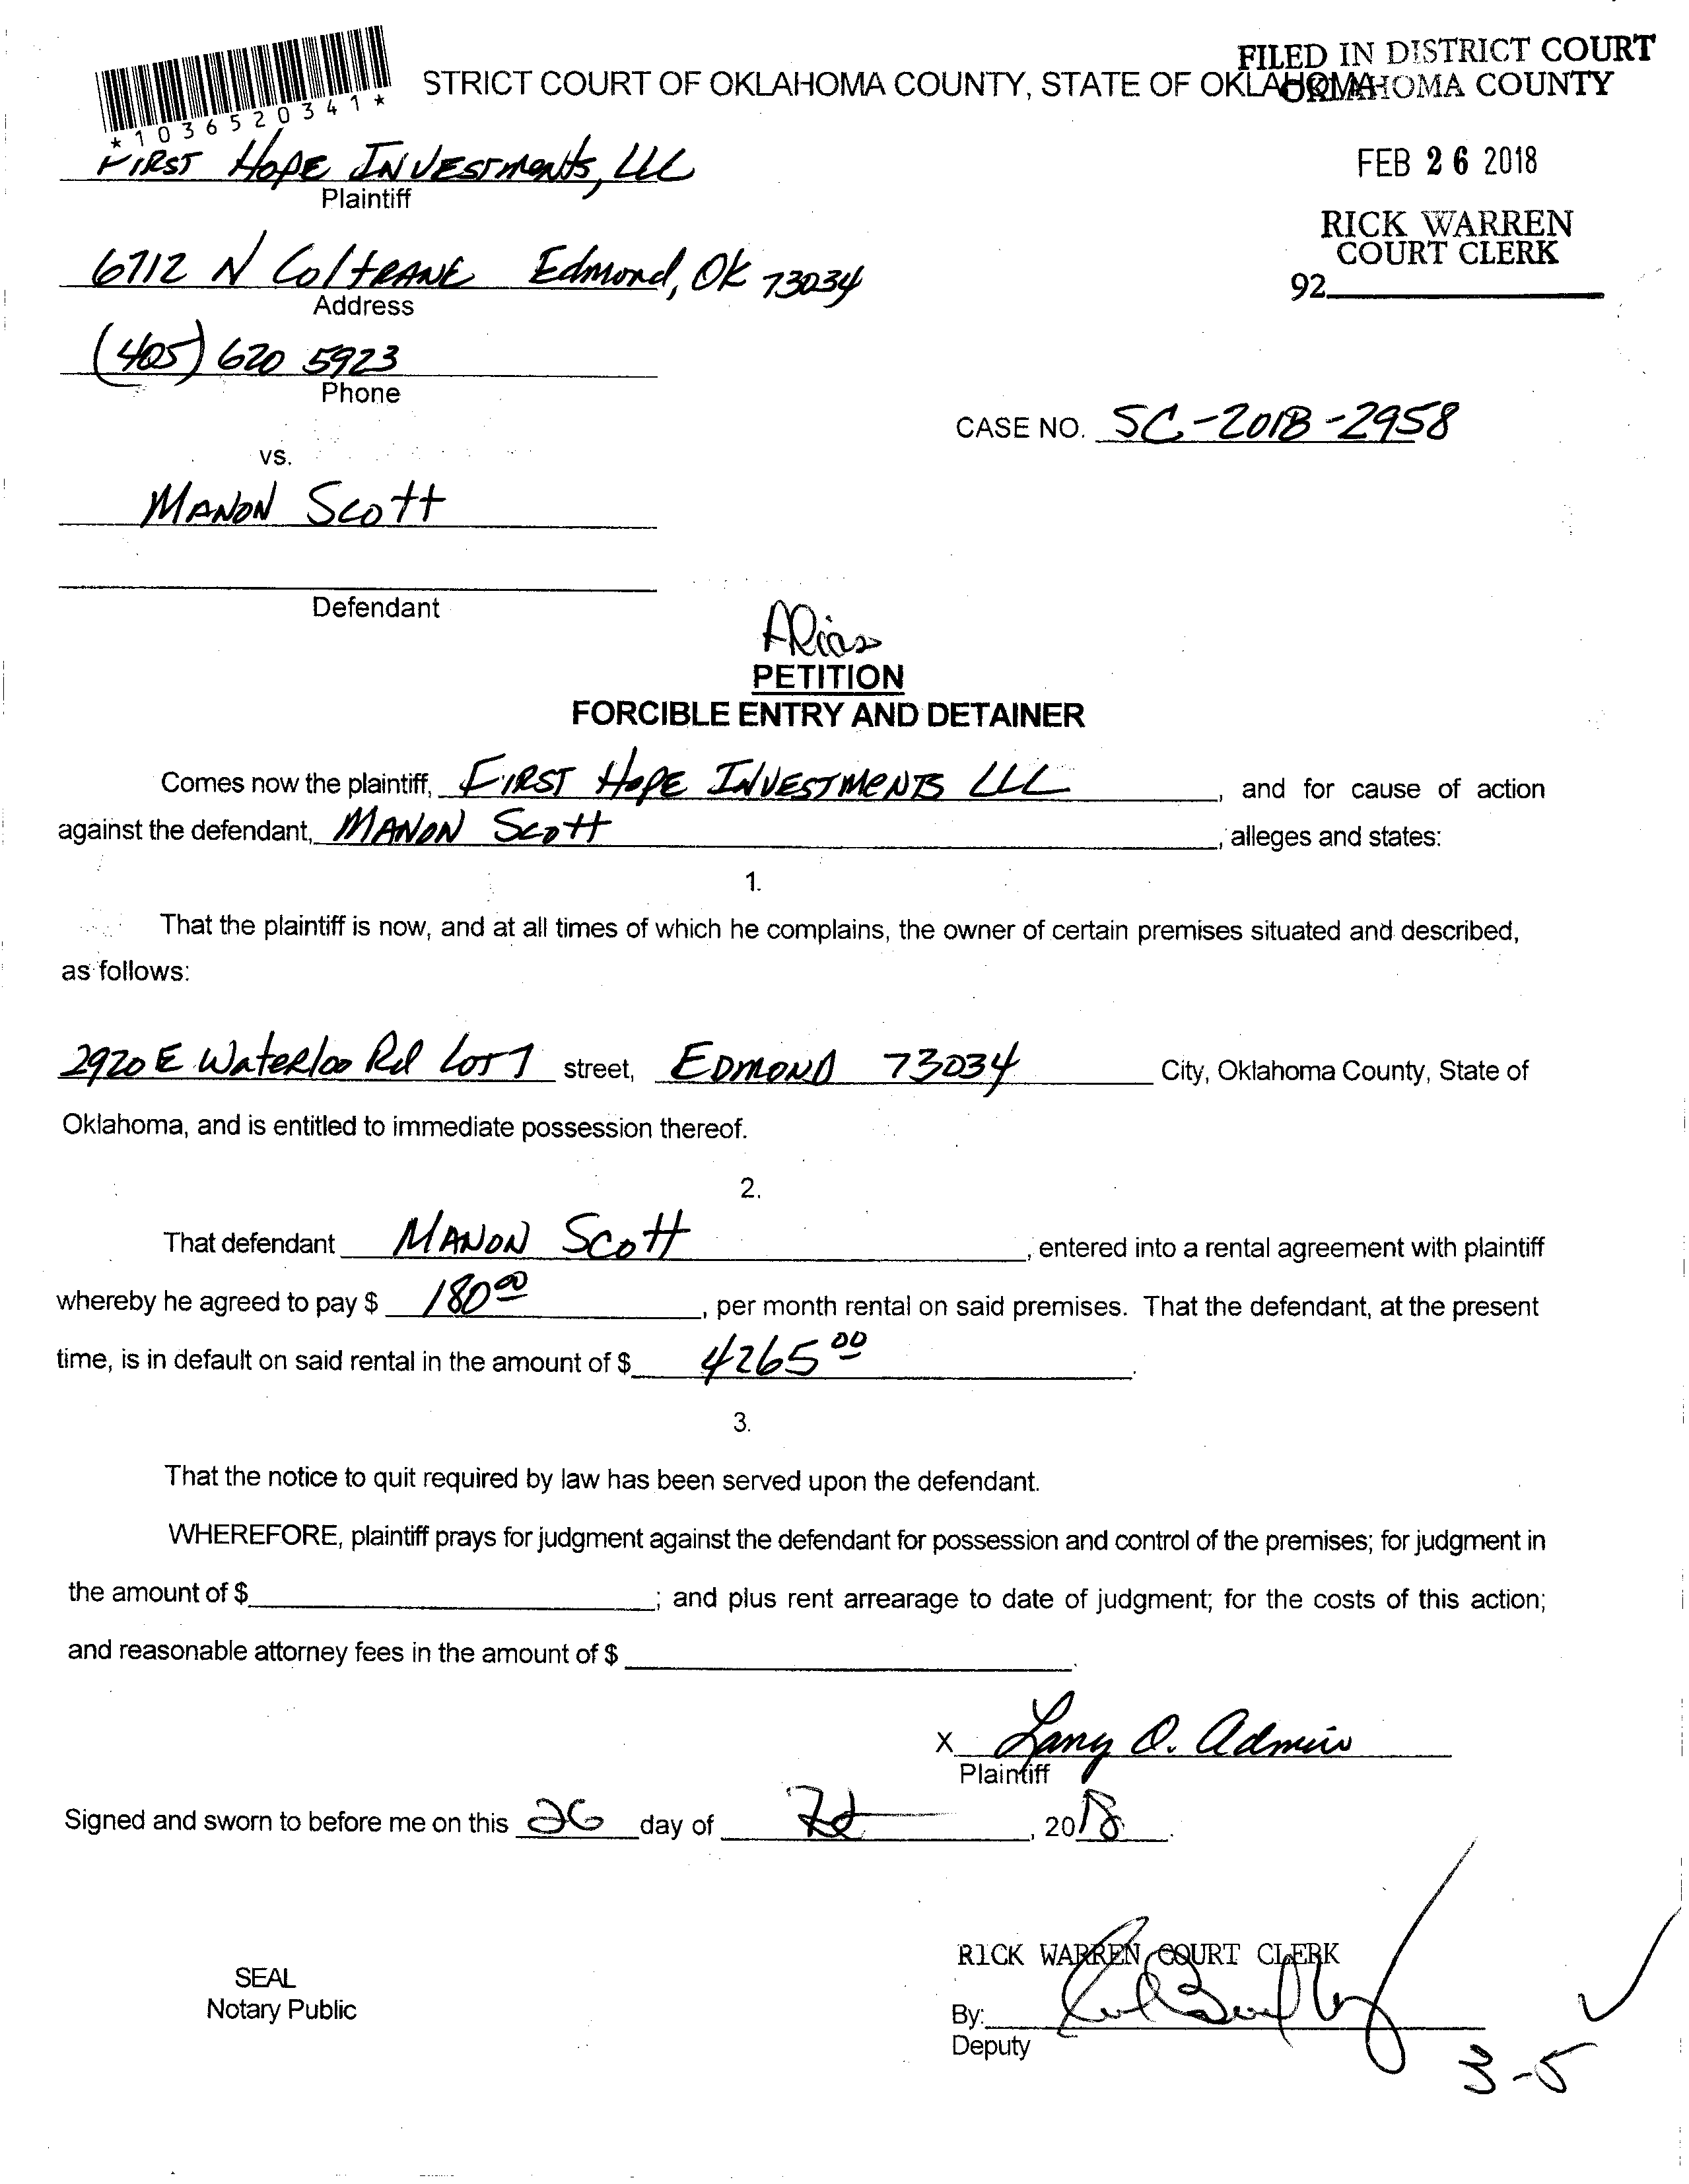 FILED IN DISTRICT COURT
STRICT COURT OF OKLAHOMA COUNTY, STATE OF OKLAHOMA
OKLAHOMA COUNTY
*1036520341*
FIRST HOPE INVESTMENTS, LLC
Plaintiff
FEB 26 2018
RICK WARREN
COURT CLERK
92
6712 N COLTRANE Edmond, OK 73034
Address
(405) 620 5923
Phone
CASE NO. SC-2018-2958
vs.
MANON SCOTT
Defendant
Alias
PETITION
FORCIBLE ENTRY AND DETAINER
Comes now the plaintiff, FIRST HOPE INVESTMENTS LLC, and for cause of action
against the defendant, MANON SCOTT, alleges and states:
1.
That the plaintiff is now, and at all times of which he complains, the owner of certain premises situated and described,
as follows:
2920 E Waterloo Rd LOT 7 street, EDMOND 73034 City, Oklahoma County, State of
Oklahoma, and is entitled to immediate possession thereof.
2.
That defendant MANON SCOTT, entered into a rental agreement with plaintiff
whereby he agreed to pay $ 180 00, per month rental on said premises. That the defendant, at the present
time, is in default on said rental in the amount of $ 4265 00.
3.
That the notice to quit required by law has been served upon the defendant.
WHEREFORE, plaintiff prays for judgment against the defendant for possession and control of the premises; for judgment in
the amount of $ ; and plus rent arrearage to date of judgment; for the costs of this action;
and reasonable attorney fees in the amount of $ .
X
Plaintiff
Signed and sworn to before me on this 26 day of , 2018.
RICK WARREN COURT CLERK
SEAL
Notary Public
By:
Deputy
3-5